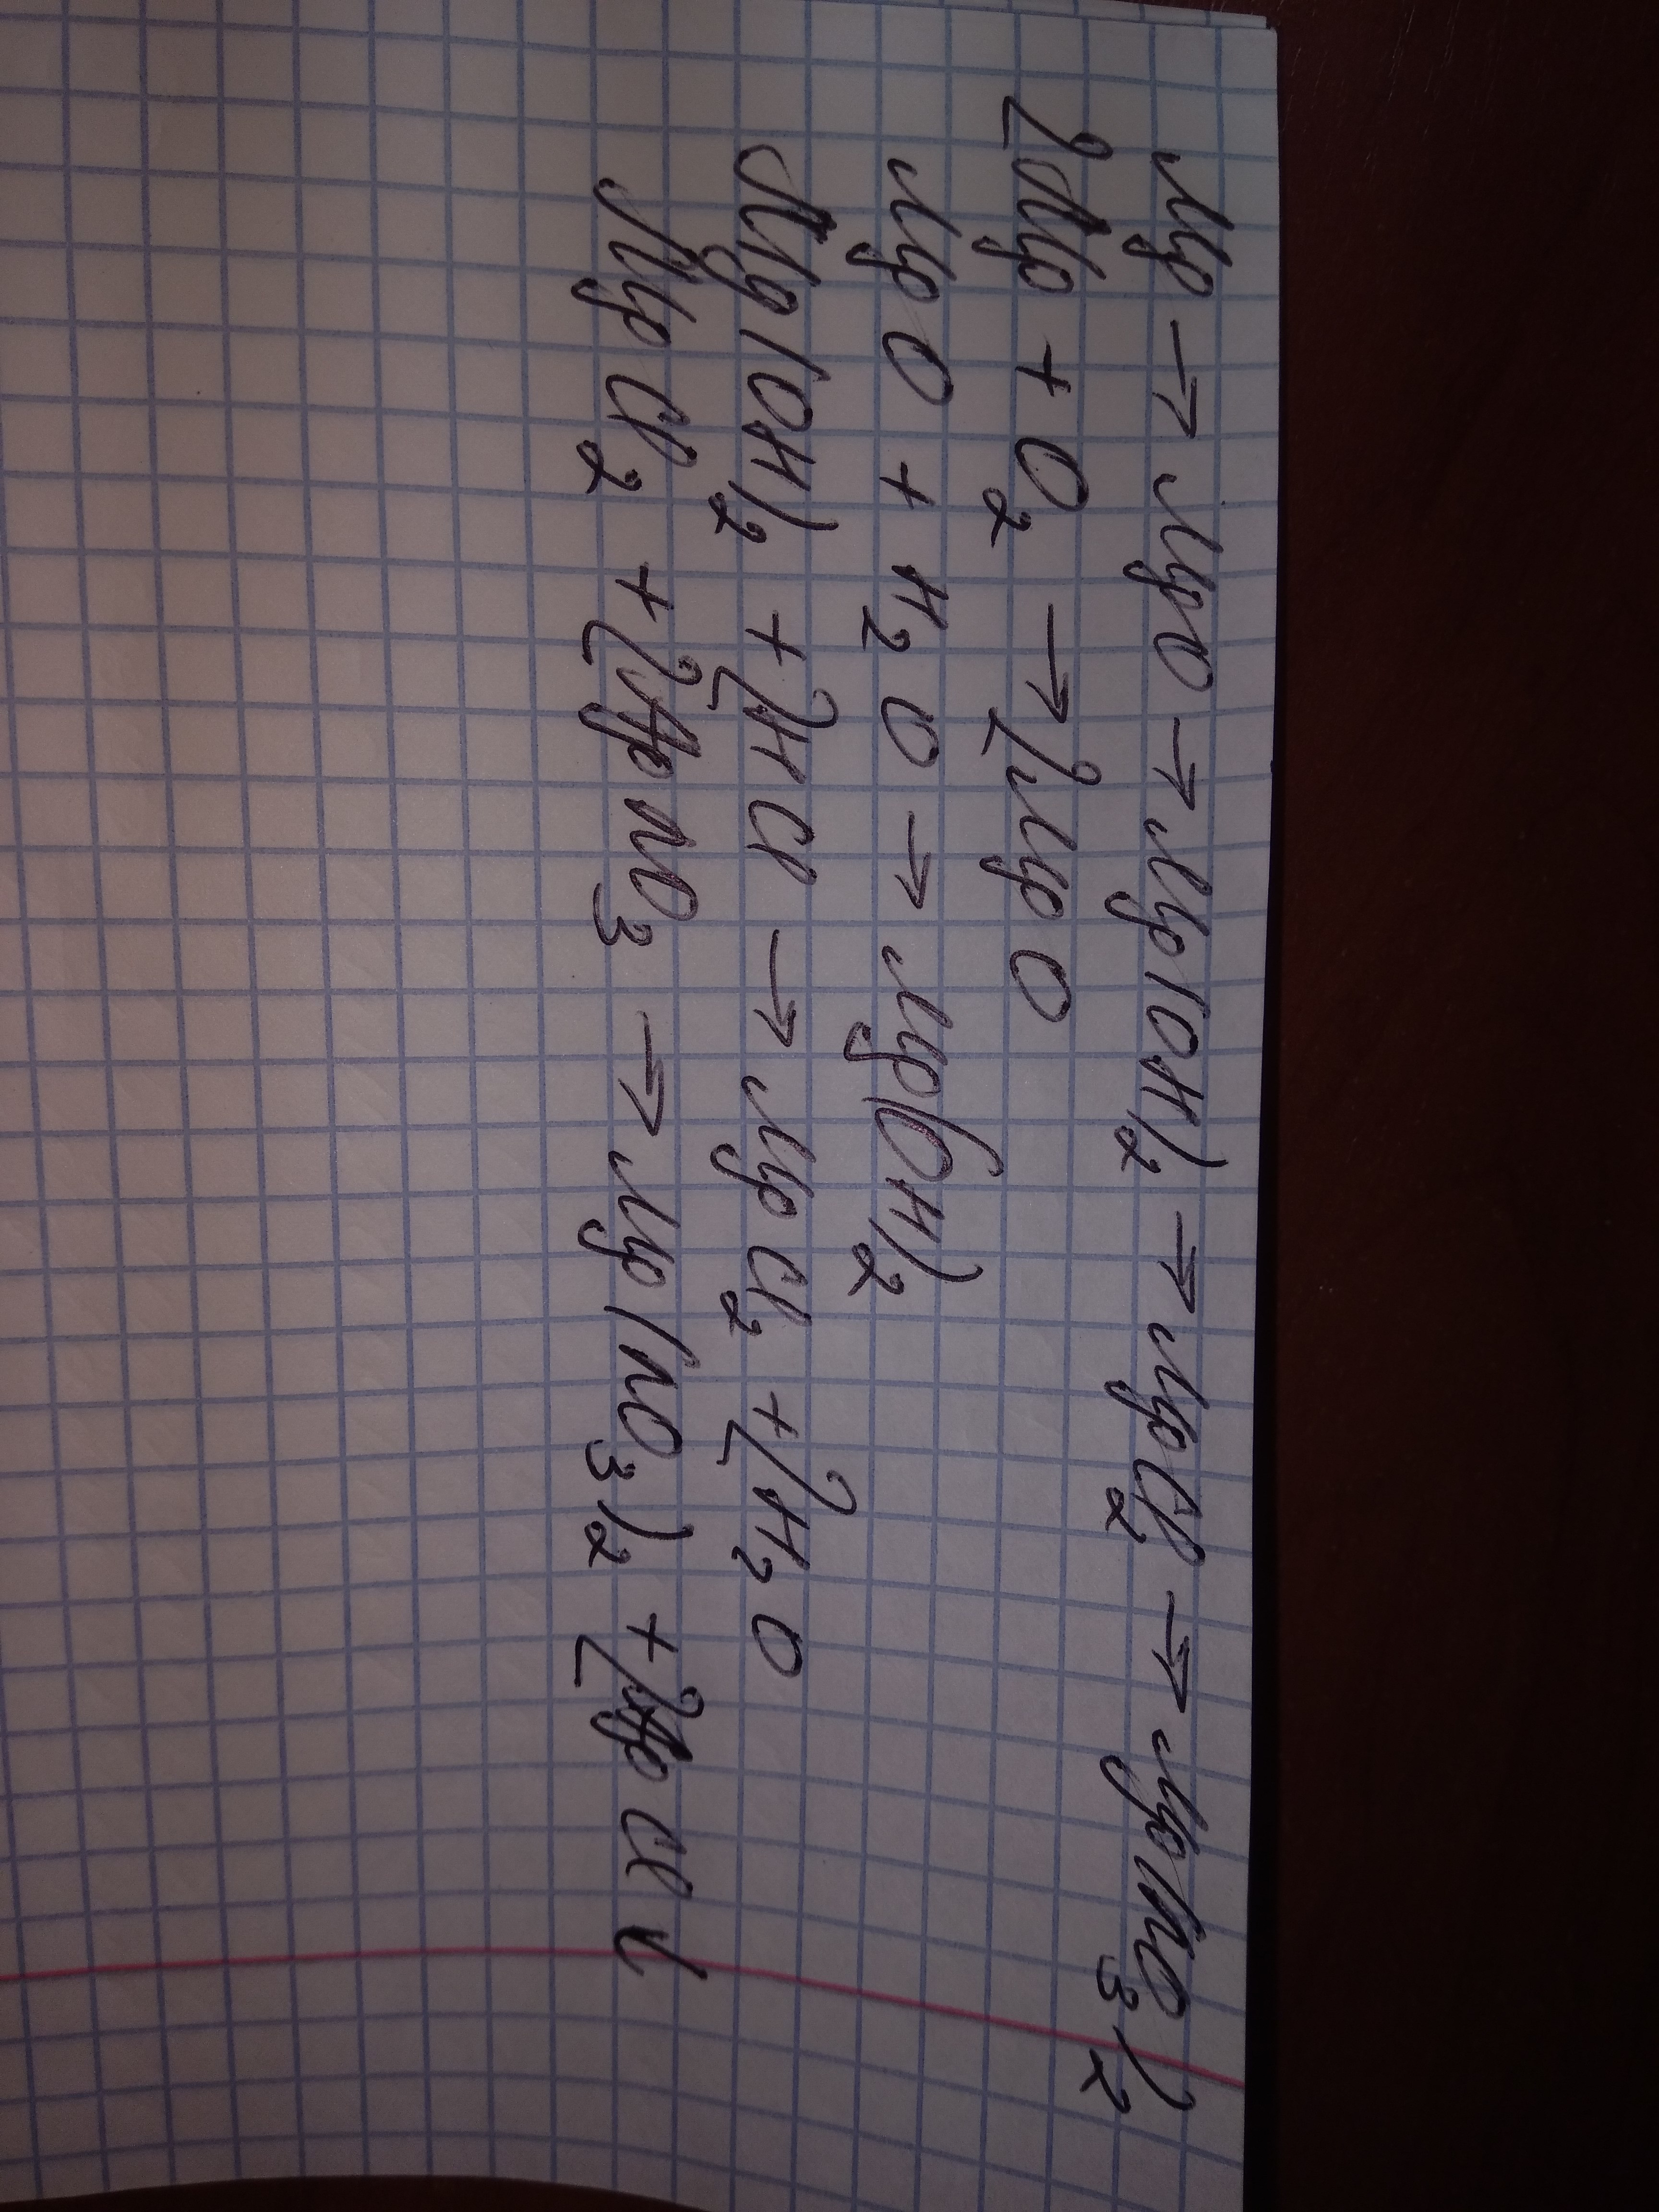 Mg → MgO → Mg(OH)₂ → MgCl₂ → Mg(NO₃)₂
2Mg + O₂ → 2MgO
MgO + H₂O → Mg(OH)₂
Mg(OH)₂ + 2HCl → MgCl₂ + 2H₂O
MgCl₂ + 2AgNO₃ → Mg(NO₃)₂ + 2AgCl ↓